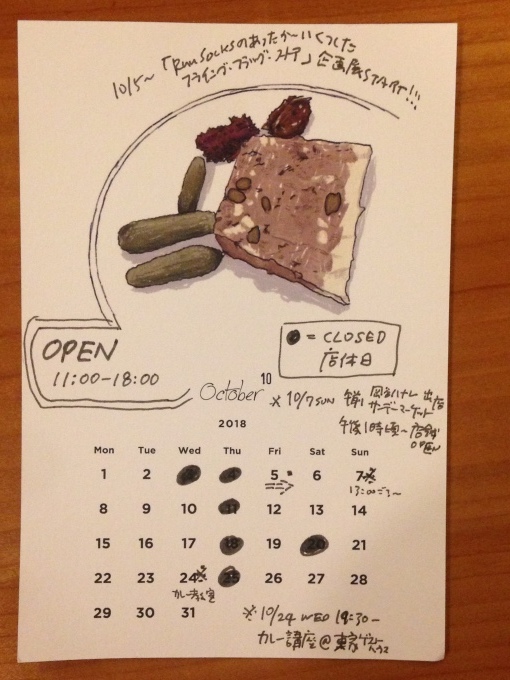 10/5〜「RuuSocksのあったか〜いくつした
フライング・フラッグ・ストア」企画展START!!!
OPEN
11:00-18:00
● = CLOSED
店休日
October 10
2018
※10/7 SUN 午前 出店
サンデーマーケット
午後1時頃〜店舗
OPEN
Mon Tue Wed Thu Fri Sat Sun
1 2 3 4 5 6 7※
13:00ごろ〜
8 9 10 11 12 13 14
15 16 17 18 19 20 21
22 23 24※ 25 26 27 28
カレー教室
29 30 31
※10/24 WED 19:30〜
カレー講座@東家ゲストハウス